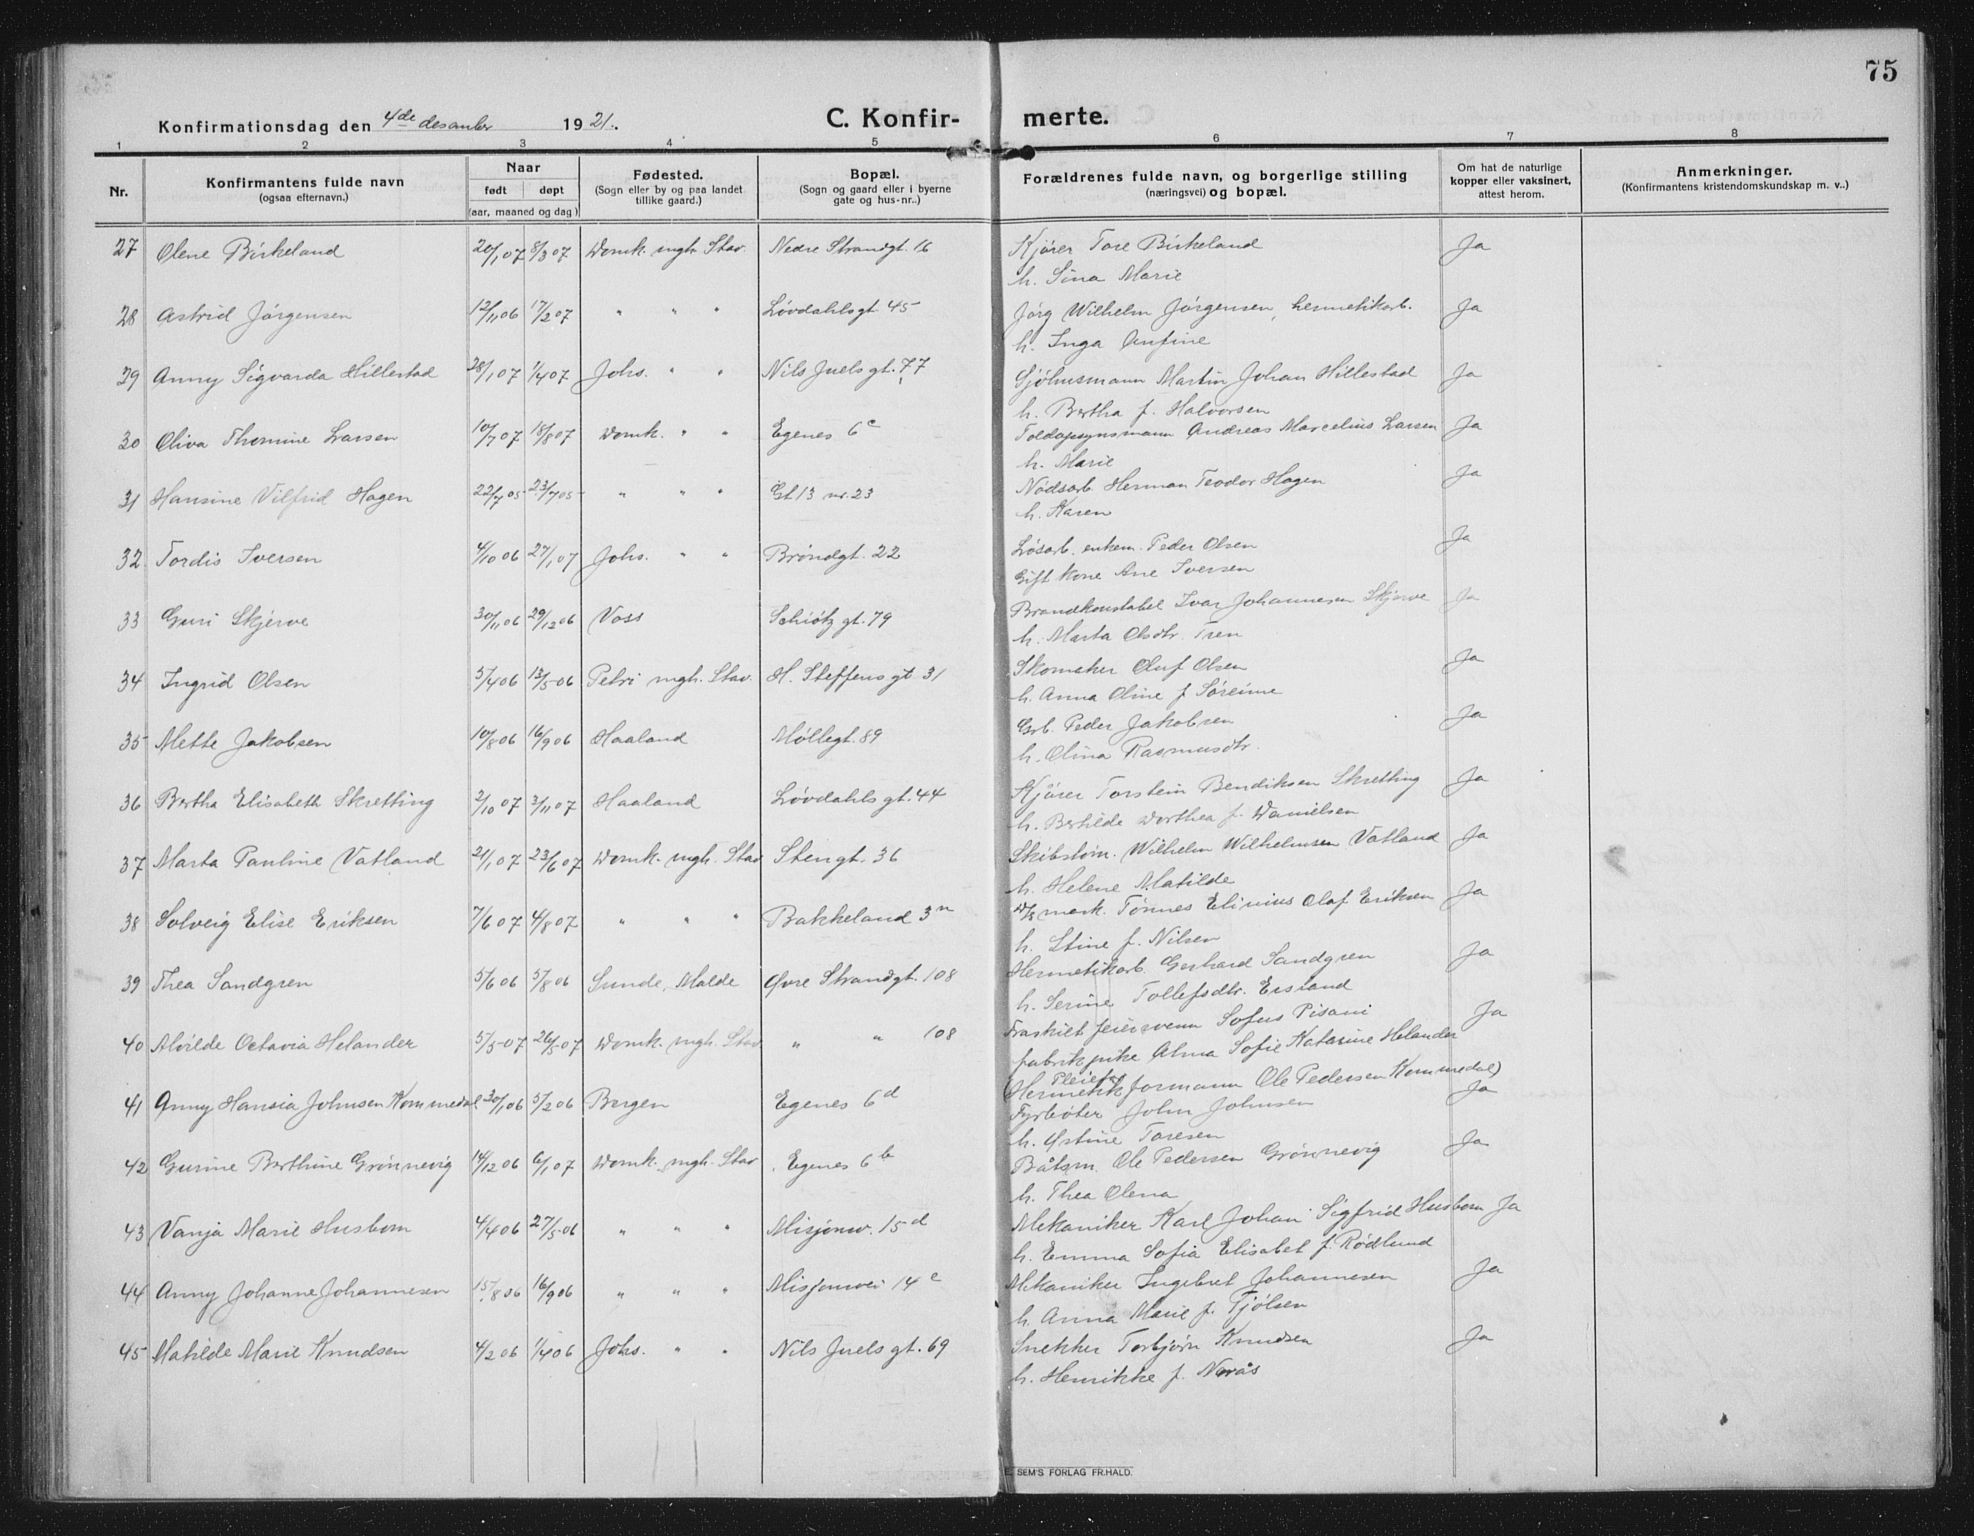 75
Konfirmationsdag den 4de desember 1921.
C. Konfirmerte.
1 2 3 4 5 6 7 8
Nr. Konfirmantens fulde navn (ogsaa efternavn.) Naar født døpt (aar, maaned og dag) Fødested. (Sogn eller by og paa landet tillike gaard.) Bopæl. (Sogn og gaard eller i byerne gate og hus-nr..) Forældrenes fulde navn, og borgerlige stilling (næringsvei) og bopæl. Om hat de naturlige kopper eller vaksinert, attest herom. Anmerkninger. (Konfirmantens kristendomskundskap m. v..)
27 Olene Birkeland 20/1 07 8/3 07 Domk. mgh. Stav. Nedre Strandgt. 16 Kjører Tore Birkeland Ja
h. Sina Marie
28 Astrid Jørgensen 12/11 06 17/2 07 " " " Løvdahlsgt 45 Jørg Wilhelm Jørgensen, hermetikarb. Ja
h. Inga Anfine
29 Anny Sigvarda Hillestad 28/1 07 1/4 07 Johs. " " Nils Juels gt. 77 Sjøhusmann Martin Johan Hillestad Ja
h. Bertha f. Halvorsen
30 Oliva Thomine Larsen 10/7 07 18/8 07 Domk. " " Egenes 6c Toldopsynsmann Andreas Marcelius Larsen Ja
h. Marie
31 Hansine Vilfrid Hagen 22/7 05 23/7 05 " " " Gt 13 nr. 23 Nødsarb. Herman Teodor Hagen Ja
h. Karen
32. Tordis Iversen 4/10 06 27/1 07 Johs. " " Brøndgt. 22 Løsarb. enkem. Peder Olsen Ja
Gift kone Ane Iversen
33 Guri Skjerve 30/11 06 29/12 06 Voss Schiøtz gt. 79 Brandkonstabel Ivar Johannesen Skjerve Ja
h. Marta Olsdtr. Tren
34 Ingrid Olsen 5/4 06 13/5 06 Petri mgh. Stav. H. Steffens gt 31 Skomaker Oluf Olsen Ja
h. Anna Oline f. Søreime
35 Mette Jakobsen 10/8 06 16/9 06 Haaland Møllegt. 89 Grb. Peder Jakobsen Ja
h. Olina Rasmusdtr.
36 Bertha Elisabeth Skretting 2/10 07 3/11 07 Haaland Løvdahls gt. 44 Kjører Torstein Bendiksen Skretting Ja
h. Bertilde Dorthea f. Danielsen
37 Marta Pauline Vatland 21/1 07 23/6 07 Domk. mgh. Stav Stengt. 36 Skibstøm. Wilhelm Wilhelmsen Vatland Ja
h. Helene Matilde
38 Solveig Elise Eriksen 7/6 07 4/8 07 " " " Bakkeland 3n D/S mask. Tønnes Elinius Olaf Eriksen Ja
h. Stine f. Nilsen
39 Thea Sandgren 5/6 06 5/8 06 Sunde, Malde Øvre Strandgt. 108 Hermetikarb. Gerhard Sandgren Ja
h. Serine Tollefsdtr. Ersland
40 Alvilde Octavia Helander 5/5 07 26/5 07 Domk. mgh. Stav " " 108 Fraskilt feiersvenn Sofus Pisani Ja
fabrikpike Alma Sofie Katarine Helander
Pleiefar
41 Anny Hansia Johnsen Kommedal 30/1 06 5/2 06 Bergen Egenes 6d Hermetikformann Ole Pedersen Kommedal) Ja
Fyrbøter John Johnsen
h. Østine Toresen
42 Gurine Berthine Grønnevig 14/12 06 6/1 07 Domk. mgh. Stav Egenes 6b Båtsm. Ole Pedersen Grønnevig Ja
h. Thea Olena
43 Vanja Marie Husbom 4/4 06 27/5 06 " " " Misjonsv. 15d Mekaniker Karl Johan Sigfrid Husbom Ja
h. Emma Sofia Elisabet f. Rødlund
44 Anny Johanne Johannesen 15/8 06 16/9 06 " " " Misjonsvei 14c Mekaniker Ingebret Johannesen Ja
h. Anna Marie f. Tjølsen
45 Matilde Marie Knudsen 4/2 06 1/4 06 Johs. " " Nils Juels gt. 69 Snekker Torbjørn Knudsen Ja
h. Henrikke f. Norås
E. SEM'S FORLAG FR.HALD.